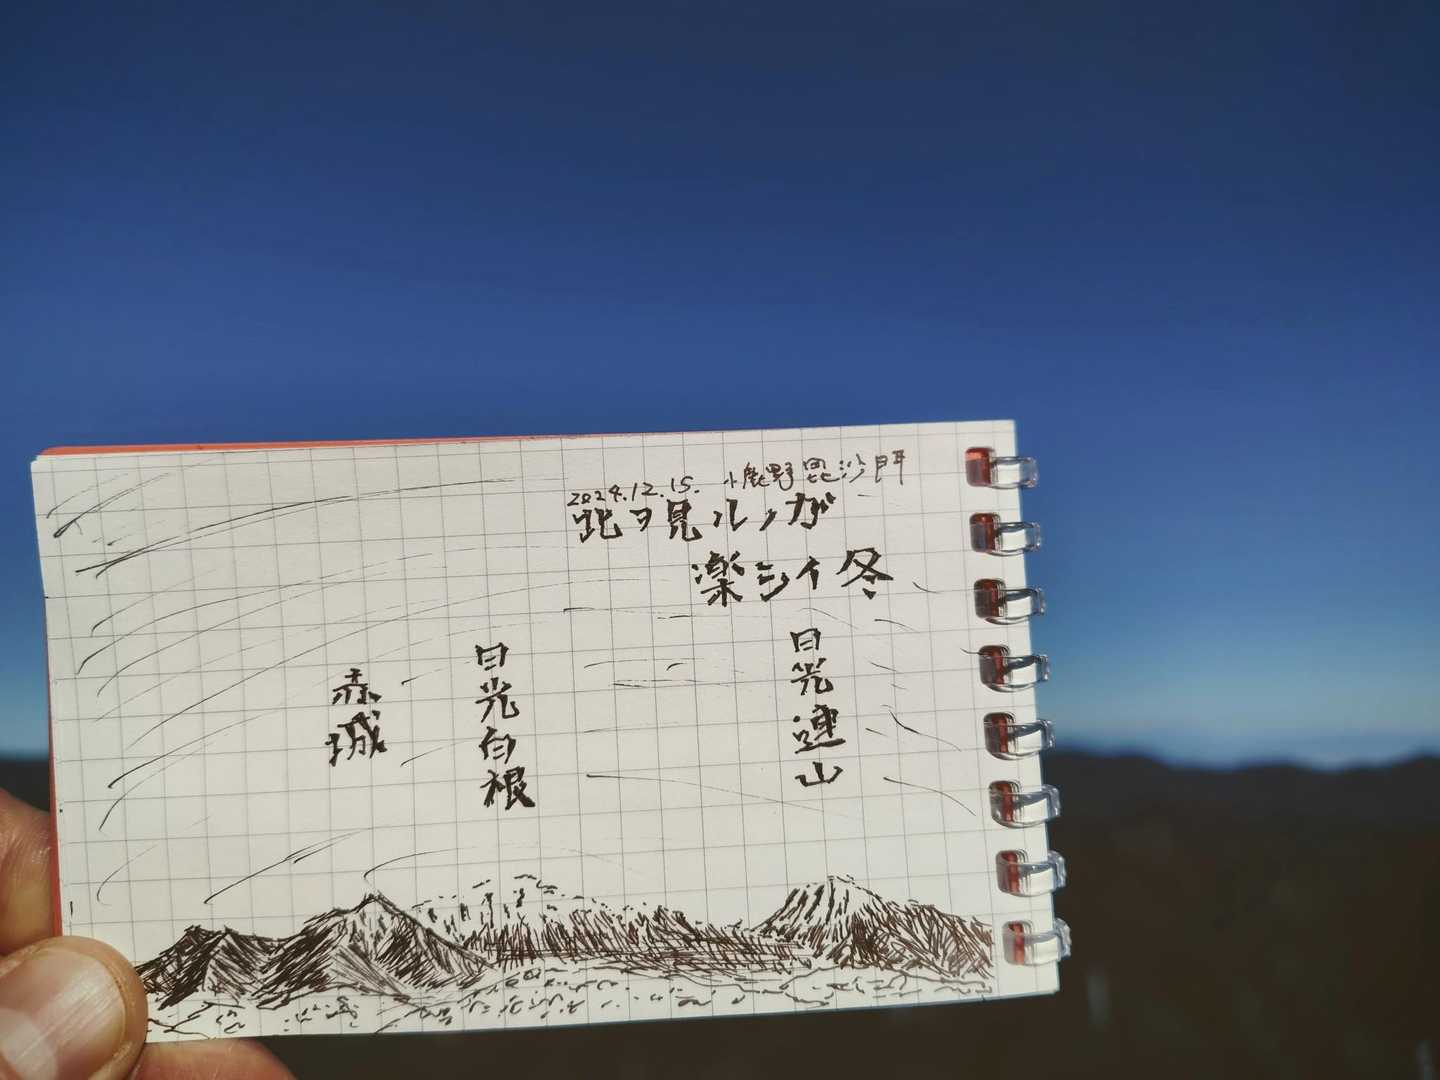 2024.12.15. 小鹿野毘沙門
此ヲ見ルノガ
楽シイ冬
日光連山
日光白根
赤城